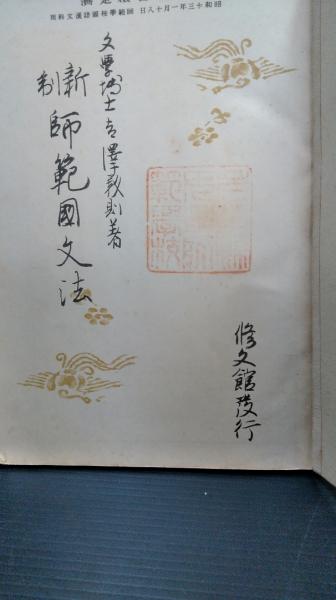 昭和十三年一月十八日 師範學校國語漢文科用
文學博士吉澤義則著
新制
師範國文法
修文館發行